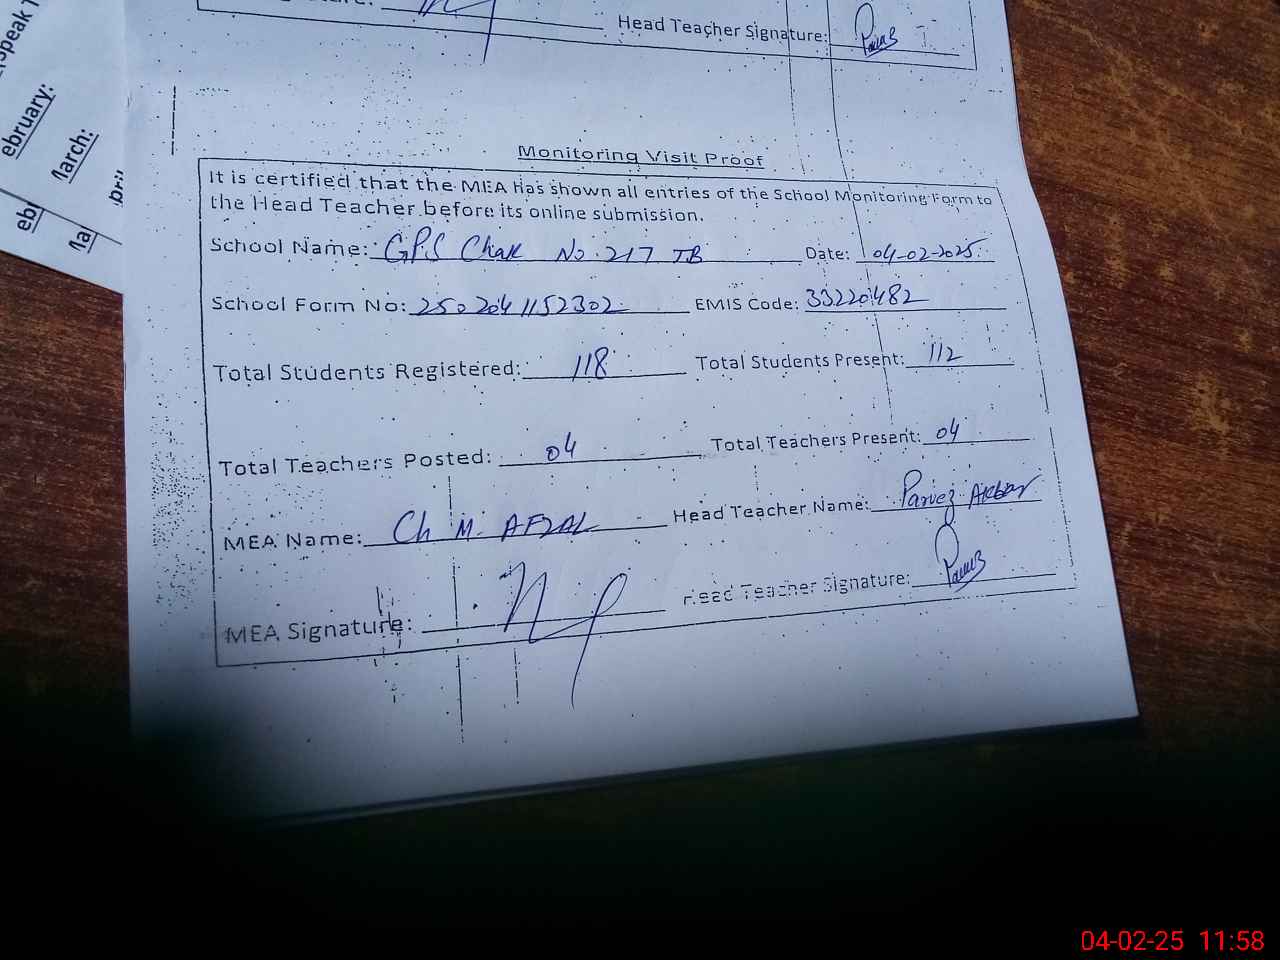 Head Teacher Signature:
speak T
ebruary:
March:
Monitoring Visit Proof
It is certified that the MEA has shown all entries of the School Monitoring Form to
the Head Teacher before its online submission.
School Name: GPS Chak No. 217 TB Date: 04-02-2025
School Form No: 2502041152302 EMIS Code: 33220482
Total Students Registered: 118 Total Students Present: 112
Total Teachers Posted: 04 Total Teachers Present: 04
MEA Name: Ch M. AFZAL Head Teacher Name: Parvez Akbar
MEA Signature: Head Teacher Signature:
04-02-25 11:58